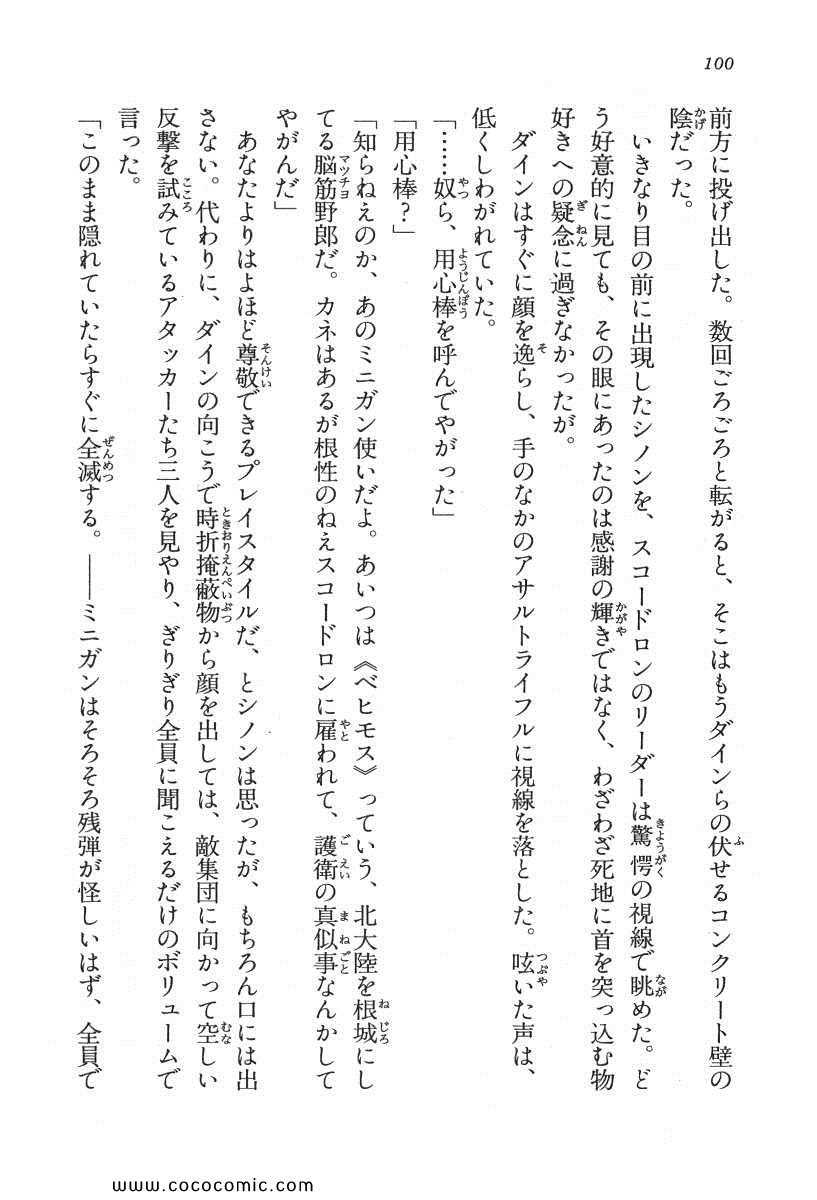 100
前方に投げ出した。数回ごろごろと転がると、そこはもうダインらの伏せるコンクリート壁の
陰だった。
いきなり目の前に出現したシノンを、スコードロンのリーダーは驚愕の視線で眺めた。ど
う好意的に見ても、その眼にあったのは感謝の輝きではなく、わざわざ死地に首を突っ込む物
好きへの疑念に過ぎなかったが。
ダインはすぐに顔を逸らし、手のなかのアサルトライフルに視線を落とした。呟いた声は、
低くしわがれていた。
「……奴ら、用心棒を呼んでやがった」
「用心棒?」
「知らねえのか、あのミニガン使いだよ。あいつは《ベヒモス》っていう、北大陸を根城にし
てる脳筋野郎だ。カネはあるが根性のねえスコードロンに雇われて、護衛の真似事なんかして
やがんだ」
あなたよりはよほど尊敬できるプレイスタイルだ、とシノンは思ったが、もちろん口には出
さない。代わりに、ダインの向こうで時折掩蔽物から顔を出しては、敵集団に向かって空しい
反撃を試みているアタッカーたち三人を見やり、ぎりぎり全員に聞こえるだけのボリュームで
言った。
「このまま隠れていたらすぐに全滅する。――ミニガンはそろそろ残弾が怪しいはず、全員で
www.cococomic.com